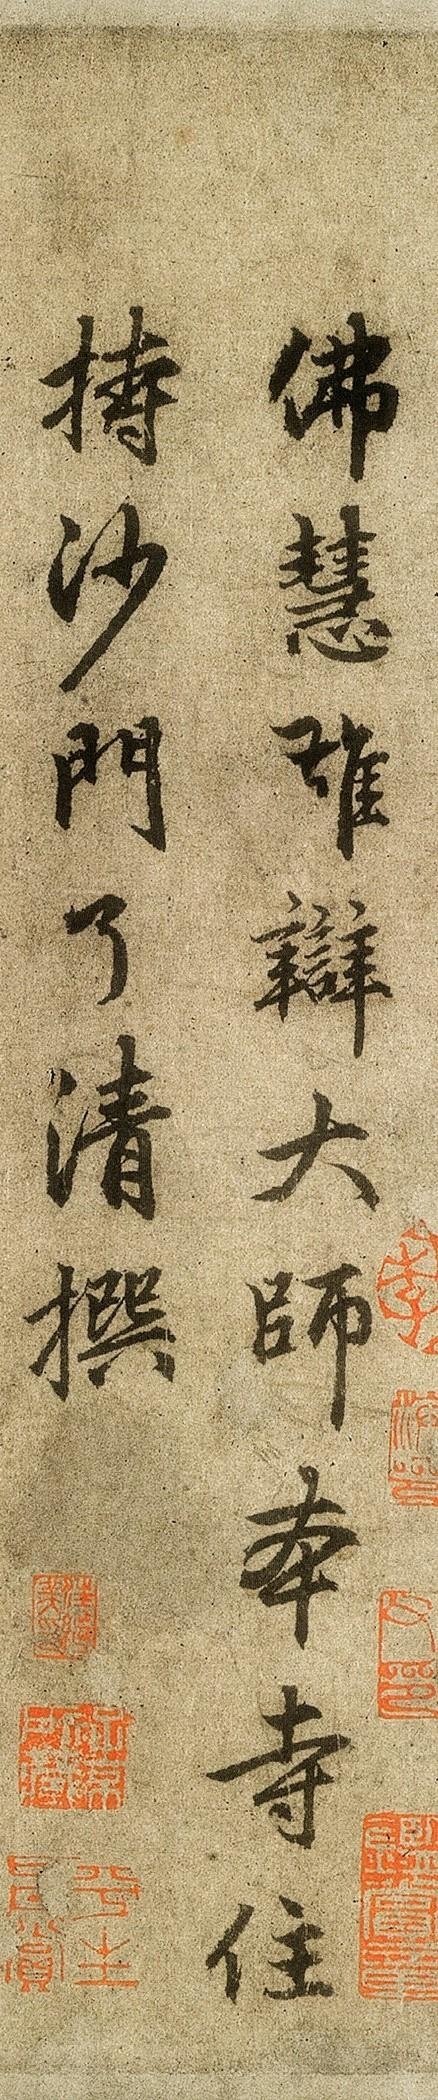 佛慧雄辯大師夲寺住
持沙門了清撰